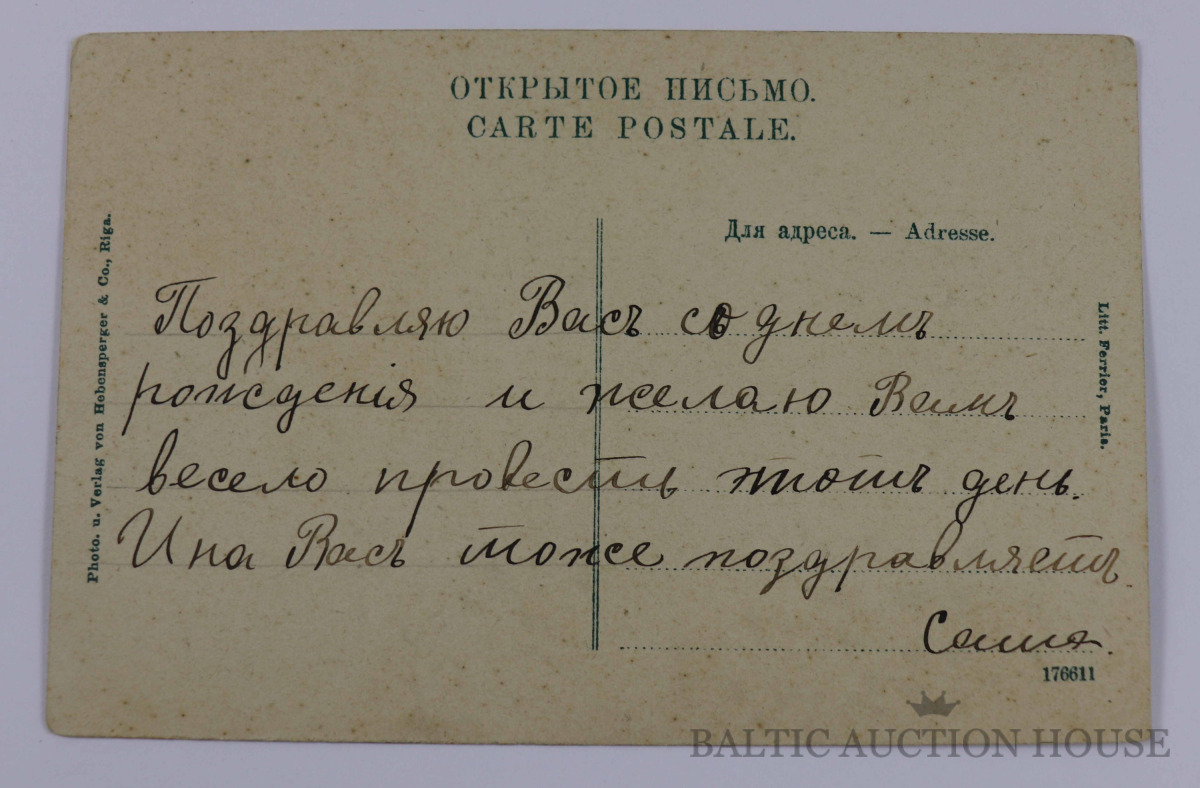 ОТКРЫТОЕ ПИСЬМО.
CARTE POSTALE.
Для адреса. — Adresse.
Photo. u. Verlag von Hebensperger & Co., Riga.
Поздравляю Васъ со днемъ
рожденія и желаю Вамъ
весело провесть этотъ день.
Ина Васъ тоже поздравляетъ.
Саша.
Litt. Ferrier, Paris.
176611
BALTIC AUCTION HOUSE